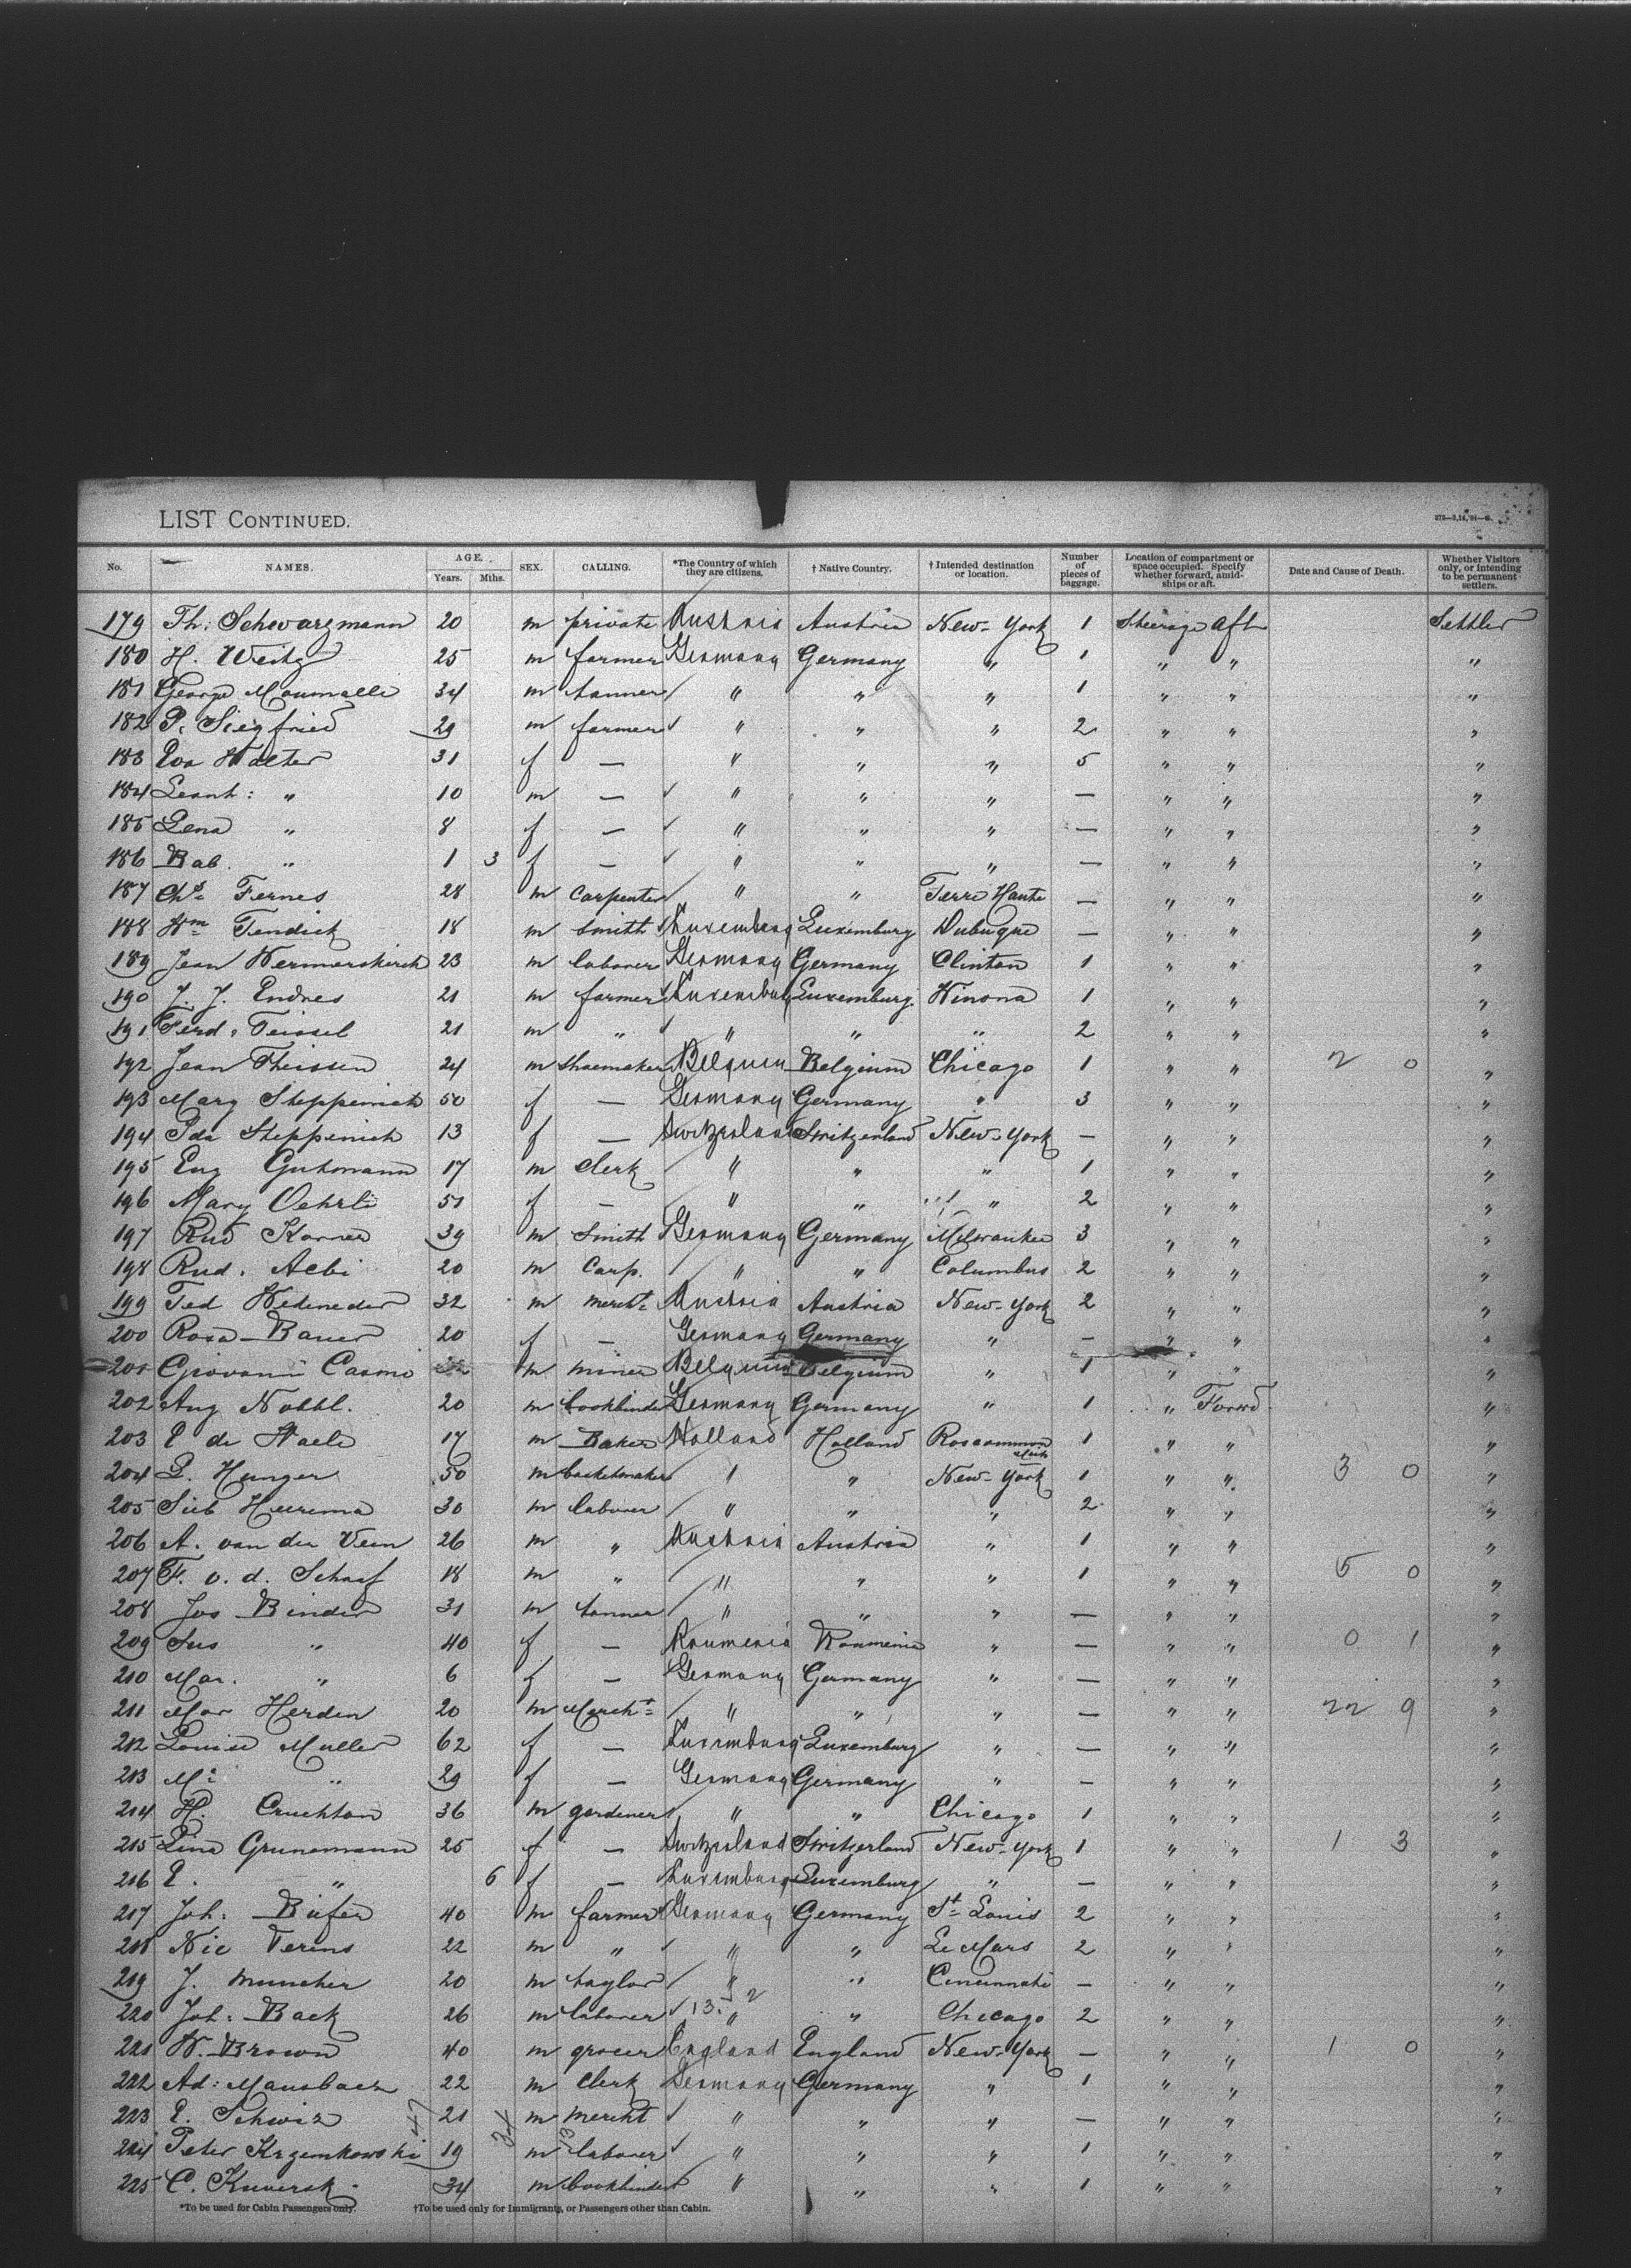 LIST CONTINUED.
No. NAMES. AGE. Years. Mths. SEX. CALLING. *The Country of which they are citizens. † Native Country. † Intended destination or location. Number of pieces of baggage. Location of compartment or space occupied. Specify whether forward, amidships or aft. Date and Cause of Death. Whether Visitors only, or intending to be permanent settlers.
179 Th: Schwarzmann 20 m private Austria Austria New-York 1 Steerage aft Settler
180 H. Weitz 25 m farmer Germany Germany " 1 " " "
181 George 34 m tanner " " " 1 " " "
182 P. Siegfried 29 m farmer " " " 2 " " "
183 Eva Walter 31 f — " " " 5 " " "
184 Leonh: " 10 m — " " " — " " "
185 Lena " 8 f — " " " — " " "
186 Bab. " 1 3 f — " " " — " " "
187 Chs Fernes 28 m carpenter " " Terre Haute — " " "
188 Wm Tendick 18 m smith Luxemburg Luxemburg Dubuque — " " "
189 Jean Wermerskirch 23 m laborer Germany Germany Clinton 1 " " "
190 J. J. Endres 21 m farmer Luxemburg Luxemburg Winona 1 " " "
191 Ferd: Teissel 21 m " " " " 2 " " "
192 Jean Theissen 24 m shoemaker Belgium Belgium Chicago 1 " " 2 0 "
193 Mary Steppenich 50 f — Germany Germany " 3 " " "
194 Ida Steppenich 13 f — Switzerland Switzerland New-York — " " "
195 Eug Gutmann 17 m clerk " " " 1 " " "
196 Mary Oehrli 51 f — " " " 2 " " "
197 Rud Korner 39 m Smith Germany Germany Milwaukee 3 " " "
198 Rud. Aebi 20 m Carp. " " Columbus 2 " " "
199 Ted Wedeneder 32 m mercht Austria Austria New-York 2 " " "
200 Rosa Bauer 20 f — Germany Germany " — " " "
201 Giovanni 32 m miner Belgium Belgium " 1 " " "
202 Aug Nobbl. 20 m bookbinder Germany Germany " 1 " Forwd "
203 E de Waele 17 m Baker Holland Holland Roscommon 1 " " "
204 L. Hunger 50 m basketmaker " " New-York 1 " " 3 0 "
205 Sieb Heerema 30 m laborer " " " 2 " " "
206 A. van der Veen 26 m " Austria Austria " 1 " " "
207 F. v. d. Schaaf 18 m " " " " 1 " " 5 0 "
208 Jos Binder 31 m tanner " " " — " " "
209 Sus " 40 f — Roumenia Roumenia " — " " 0 1 "
210 Mar. " 6 f — Germany Germany " — " " "
211 Mor Herden 20 m Mercht " " " — " " 22 9 "
212 Louise Muller 62 f — Luxemburg Luxemburg " — " " "
213 M: " 29 f — Germany Germany " — " " "
214 H. Cruchtan 36 m gardener " " Chicago 1 " " "
215 Lina Grunemann 25 f — Switzerland Switzerland New-York 1 " " 1 3 "
216 E. " 6 f — Luxemburg Luxemburg " — " " "
217 Joh: Biefer 40 m farmer Germany Germany St Louis 2 " " "
218 Nic Terens 22 m " " " Le Mars 2 " " "
219 J. Muncher 20 m taylor " " Cincinnati — " " "
220 Joh: Back 26 m laborer " " Chicago 2 " " "
221 W. Brown 40 m grocer England England New-York — " " 1 0 "
222 Ad: Mansbach 22 m Clerk Germany Germany " 1 " " "
223 E. Schwiz 21 m mercht " " " — " " "
224 Peter Krzemkowski 19 m laborer " " " 1 " " "
225 C. Kuversk 34 m bookbinder " " " 1 " " "
*To be used for Cabin Passengers only. †To be used only for Immigrants, or Passengers other than Cabin.